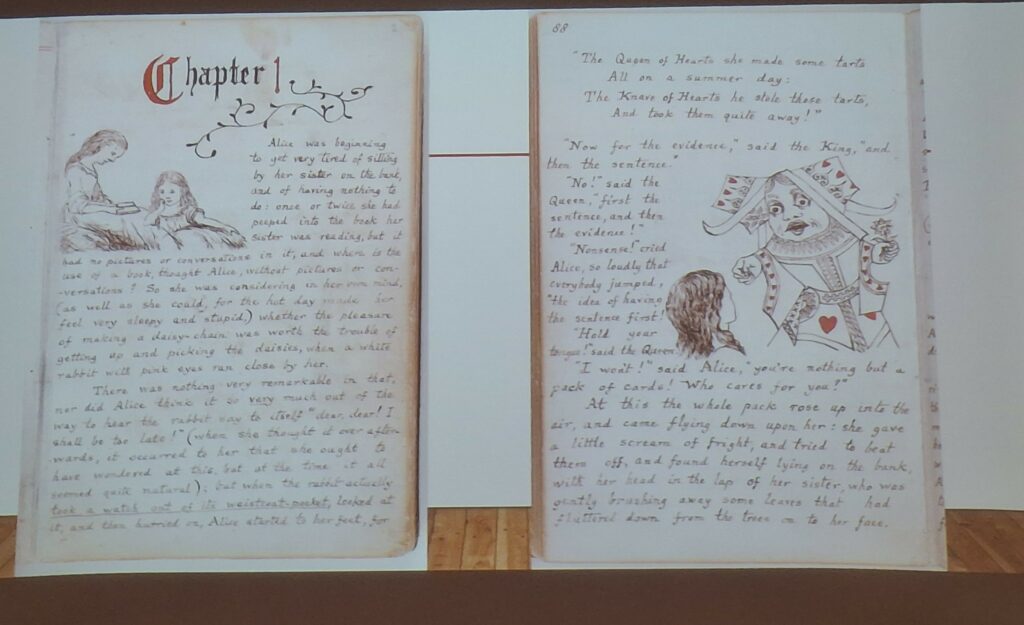 Chapter 1
Alice was beginning
to get very tired of sitting
by her sister on the bank,
and of having nothing to
do: once or twice she had
peeped into the book her
sister was reading, but it
had no pictures or conversations in it, and where is the
use of a book, thought Alice, without pictures or con-
-versations? So she was considering in her own mind,
(as well as she could, for the hot day made her
feel very sleepy and stupid,) whether the pleasure
of making a daisy-chain was worth the trouble of
getting up and picking the daisies, when a white
rabbit with pink eyes ran close by her.
There was nothing very remarkable in that,
nor did Alice think it so very much out of the
way to hear the rabbit say to itself "dear, dear! I
shall be too late!" (when she thought it over after-
wards, it occurred to her that she ought to
have wondered at this, but at the time it all
seemed quite natural); but when the rabbit actually
took a watch out of its waistcoat-pocket, looked at
it, and then hurried on, Alice started to her feet, for
88
"The Queen of Hearts she made some tarts
All on a summer day:
The Knave of Hearts he stole those tarts,
And took them quite away!"
"Now for the evidence," said the King, "and
then the sentence."
"No!" said the
Queen, "first the
sentence, and then
the evidence!"
"Nonsense!" cried
Alice, so loudly that
everybody jumped,
"the idea of having
the sentence first!
"Hold your
tongue!" said the Queen.
"I won't!" said Alice, "you're nothing but a
pack of cards! Who cares for you?"
At this the whole pack rose up into the
air, and came flying down upon her: she gave
a little scream of fright, and tried to beat
them off, and found herself lying on the bank,
with her head in the lap of her sister, who was
gently brushing away some leaves that had
fluttered down from the trees on to her face.